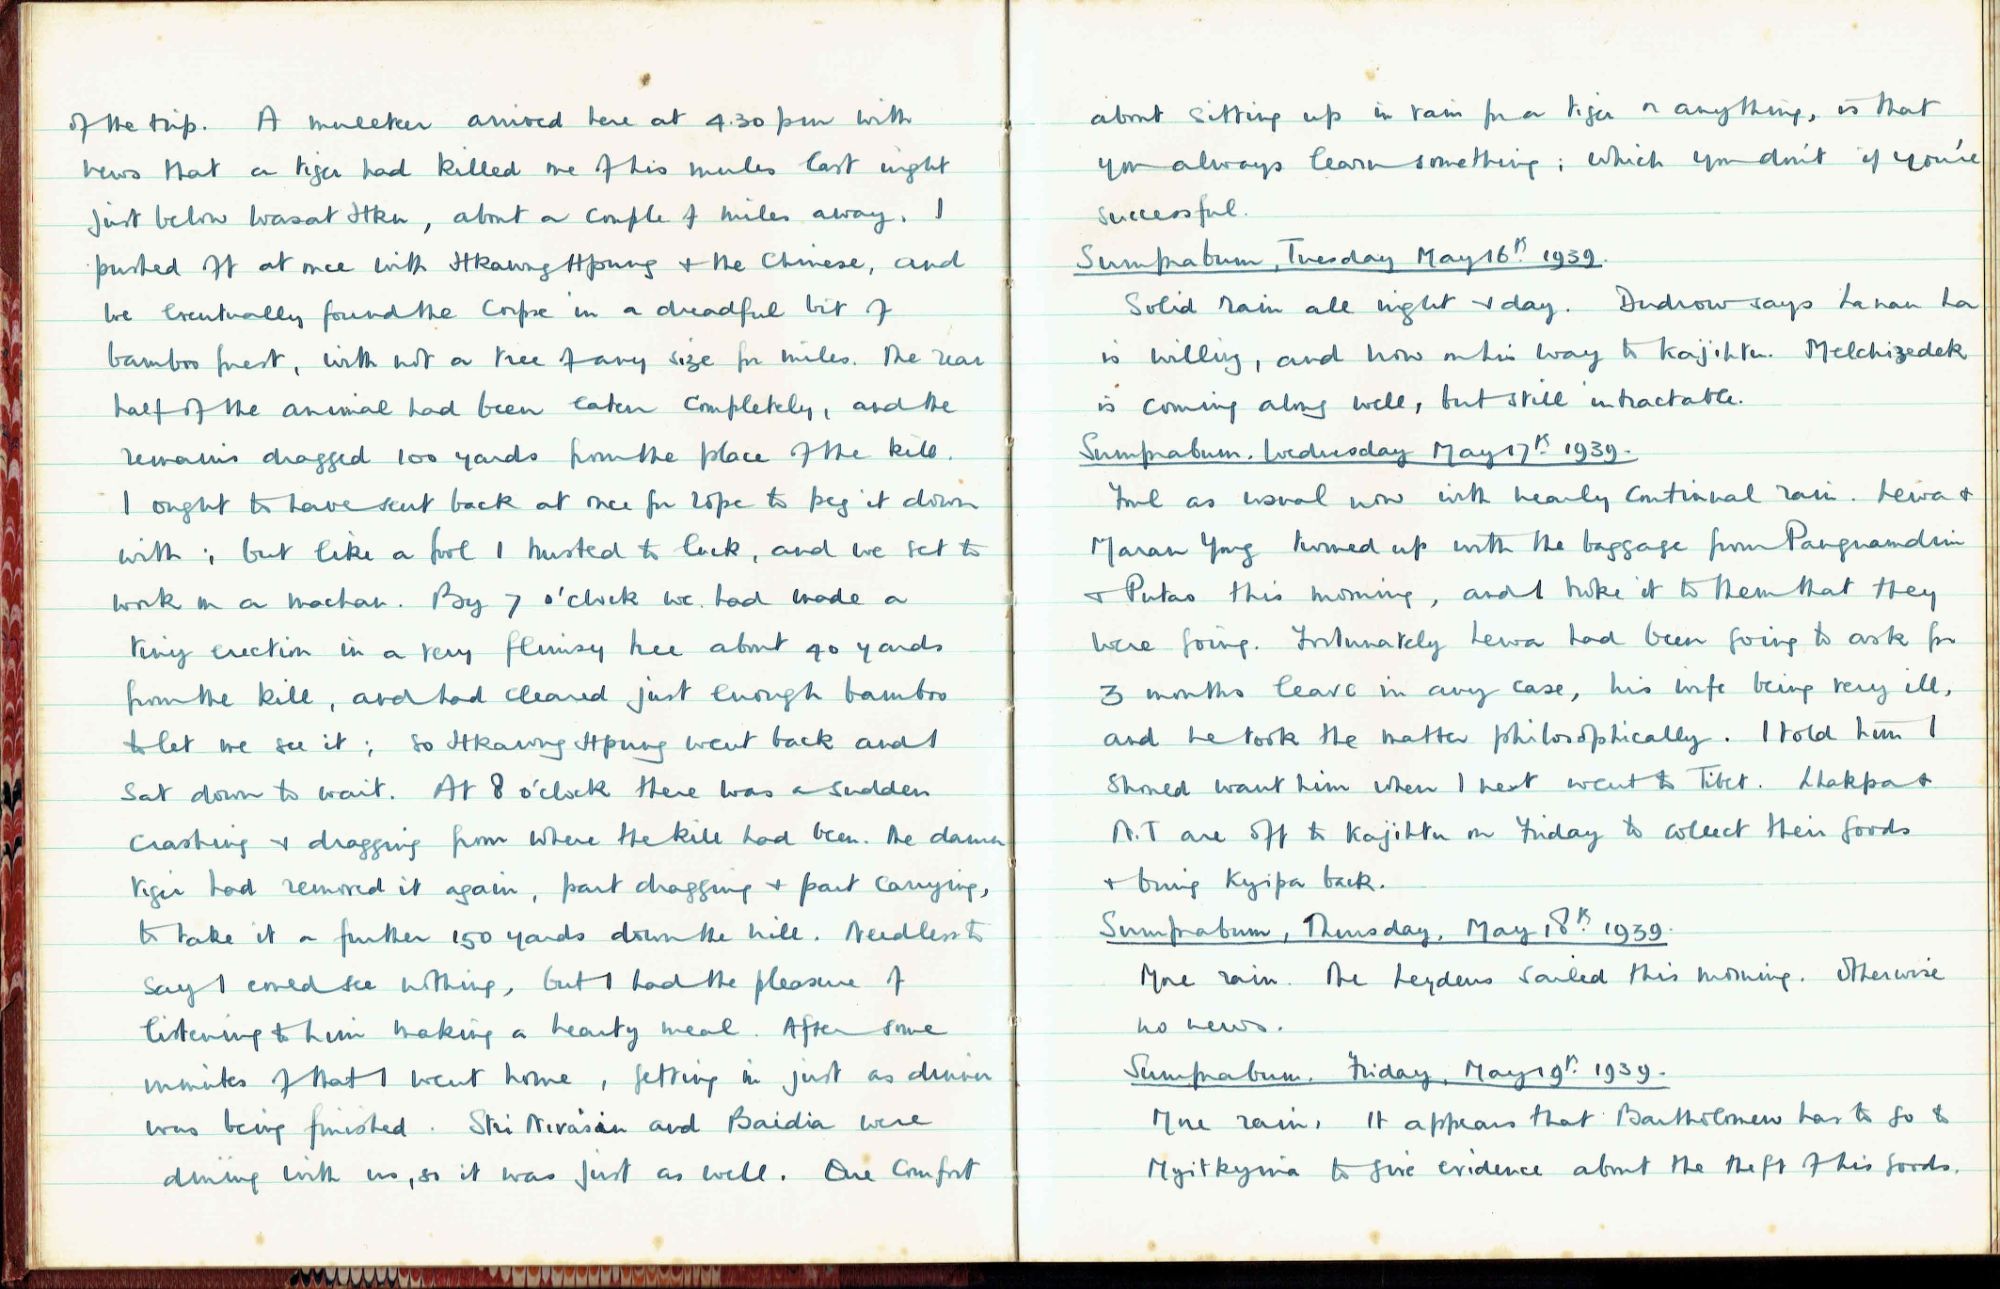 of the trip. A muleteer arrived here at 4.30 pm with
news that a tiger had killed one of his mules last night
just below Wasat Hku, about a couple of miles away. I
pushed off at once with Hkawng Hpung & the Chinese, and
we eventually found the corpse in a dreadful bit of
bamboo forest, with not a tree of any size for miles. The rear
half of the animal had been eaten completely, and the
remains dragged 100 yards from the place of the kill.
I ought to have sent back at once for rope to peg it down
with; but like a fool I trusted to luck, and we set to
work on a machan. By 7 o'clock we had made a
tiny erection in a very flimsy tree about 40 yards
from the kill, and had cleared just enough bamboo
to let me see it; so Hkawng Hpung went back and I
sat down to wait. At 8 o'clock there was a sudden
crashing & dragging from where the kill had been. The damn
tiger had removed it again, part dragging & part carrying,
to take it a further 150 yards down the hill. Needless to
say I could see nothing, but I had the pleasure of
listening to him making a hearty meal. After some
minutes of that I went home, getting in just as dinner
was being finished. Sri Nivasan and Baidia were
dining with us, so it was just as well. One comfort
about sitting up in vain for a tiger or anything, is that
you always learn something; which you don't if you're
successful.
Sumprabum, Tuesday May 16th 1939.
Solid rain all night & day. Dudrow says Lanan La
is willing, and now on his way to Kajihtu. Melchizedek
is coming along well, but still intractable.
Sumprabum. Wednesday May 17th 1939.
Foul as usual now with nearly continual rain. Lewa &
Maran Yong turned up with the baggage from Pangnamdim
& Putao this morning, and I broke it to them that they
were going. Fortunately Lewa had been going to ask for
3 months leave in any case, his wife being very ill,
and he took the matter philosophically. I told him I
should want him when I next went to Tibet. Lhakpa &
N.T are off to Kajihtu on Friday to collect their goods
& bring Kyipa back.
Sumprabum, Thursday, May 18th 1939.
More rain. The Leydens sailed this morning. Otherwise
no news.
Sumprabum. Friday, May 19th 1939.
More rain. It appears that Bartholomew has to go to
Myitkyina to give evidence about the theft of his goods.